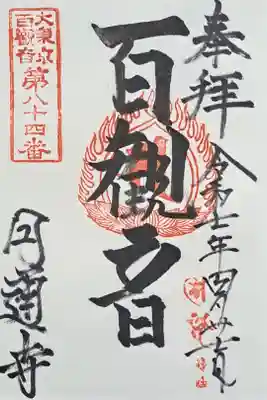 奉拝
令和七年四月廿五日
百観音
大東京
百観音
第八十四番
円通寺